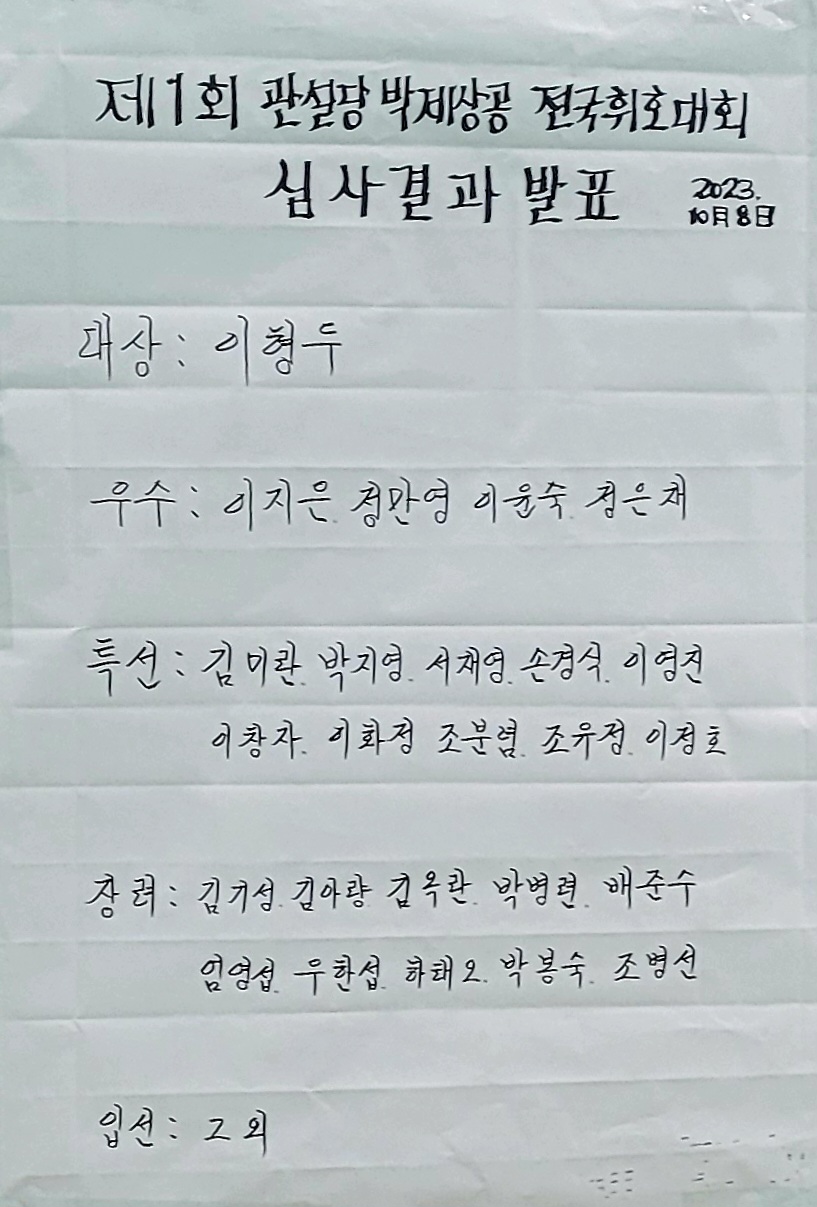 제1회 관설당 박제상공 전국휘호대회
심사결과 발표 2023.
10月 8日
대상: 이형두
우수: 이지은. 정만영 이윤숙. 정은채
특선: 김미란. 박지영. 서재영. 손경식. 이영진
이창자. 이화정 조분렴. 조유정. 이정호
장려: 김기성. 김아량 김옥란. 박병련. 배준수
엄영섭. 우한섭. 하태오. 박봉숙. 조병선
입선: 그외